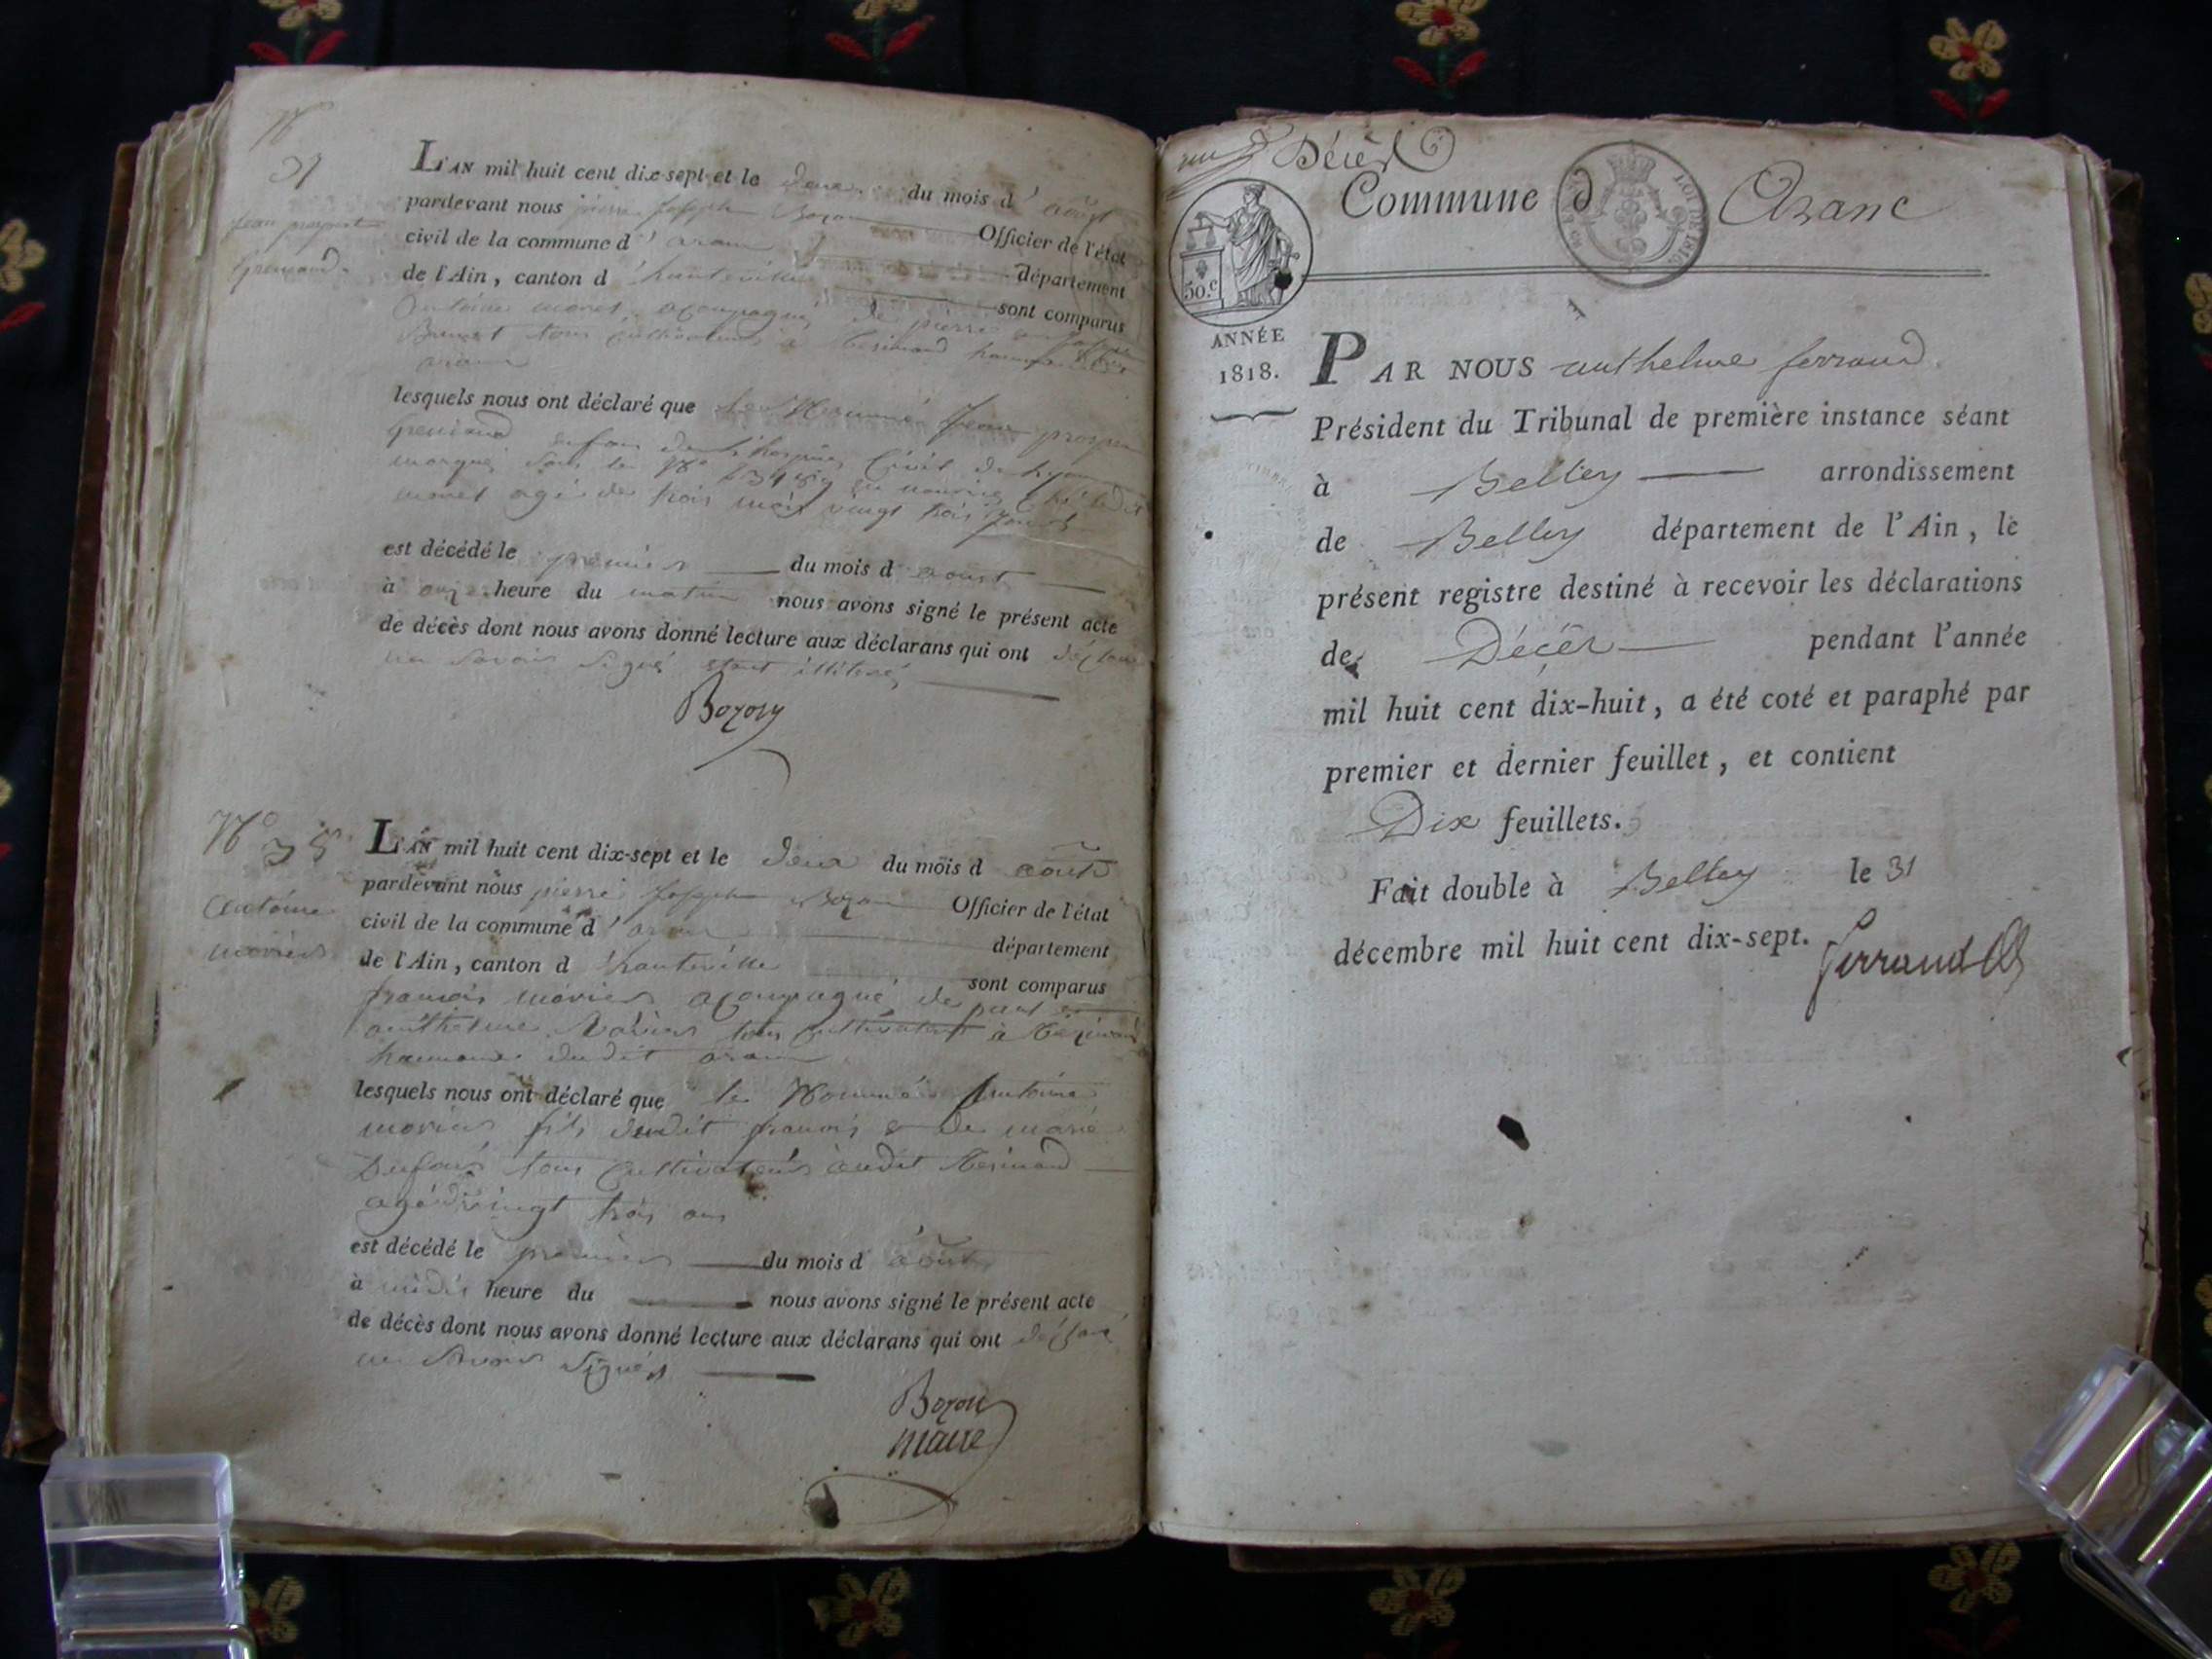 L'AN mil huit cent dix-sept et le deux du mois d' août
pardevant nous pierre Joseph Bozon Officier de l'état
civil de la commune d' aranc département
de l'Ain, canton d' hauteville sont comparus
antoine moret acompagné de pierre
Brunet tous cultivateurs à
aranc
lesquels nous ont déclaré que le Nommé Jean prosper
enfan de l'hospice Civil de Lyon
marqué sous le N°
moret agé de trois mois vingt trois jours
est décédé le premier du mois d' aoust
à onze heure du matin nous avons signé le présent acte
de décès dont nous avons donné lecture aux déclarans qui ont déclaré
ne savoir signé étant illitéré
Bozon
N° 35
Antoine
moriers
L'AN mil huit cent dix-sept et le deux du mois d' août
pardevant nous pierre Joseph Bozon Officier de l'état
civil de la commune d' aranc département
de l'Ain, canton d' hauteville sont comparus
francois moriers acompagné de paul et
anthelme tous cultivateurs à
hameau dudit aranc
lesquels nous ont déclaré que le Nommé Antoine
moriers fils dudit francois et de marie
Dufour tous Cultivateurs audit
agé de vingt trois ans
est décédé le premier du mois d' août
à midi heure du nous avons signé le présent acte
de décès dont nous avons donné lecture aux déclarans qui ont déclaré
ne savoir signer
Bozon
maire
Décès
Commune d' Aranc
LOI DE 1816
50.c
ANNÉE
1818.
PAR NOUS anthelme ferrand
Président du Tribunal de première instance séant
à Belley arrondissement
de Belley département de l'Ain, le
présent registre destiné à recevoir les déclarations
de Décès pendant l'année
mil huit cent dix-huit, a été coté et paraphé par
premier et dernier feuillet, et contient
Dix feuillets.
Fait double à Belley le 31
décembre mil huit cent dix-sept.
ferrand